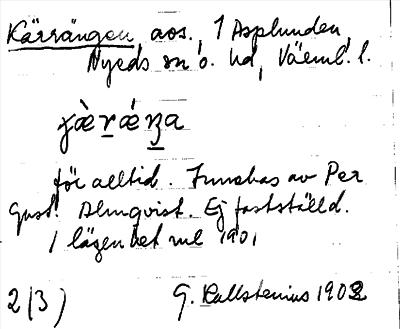 Kärrängen, aos., 1 Asplunden,
Nyeds sn o. hd, Värml. l.
för alltid. Innehas av Per
Gust. Almqvist. Ej fastställd.
1 lägenhet 1901
2(3) G. Kallstenius 1902